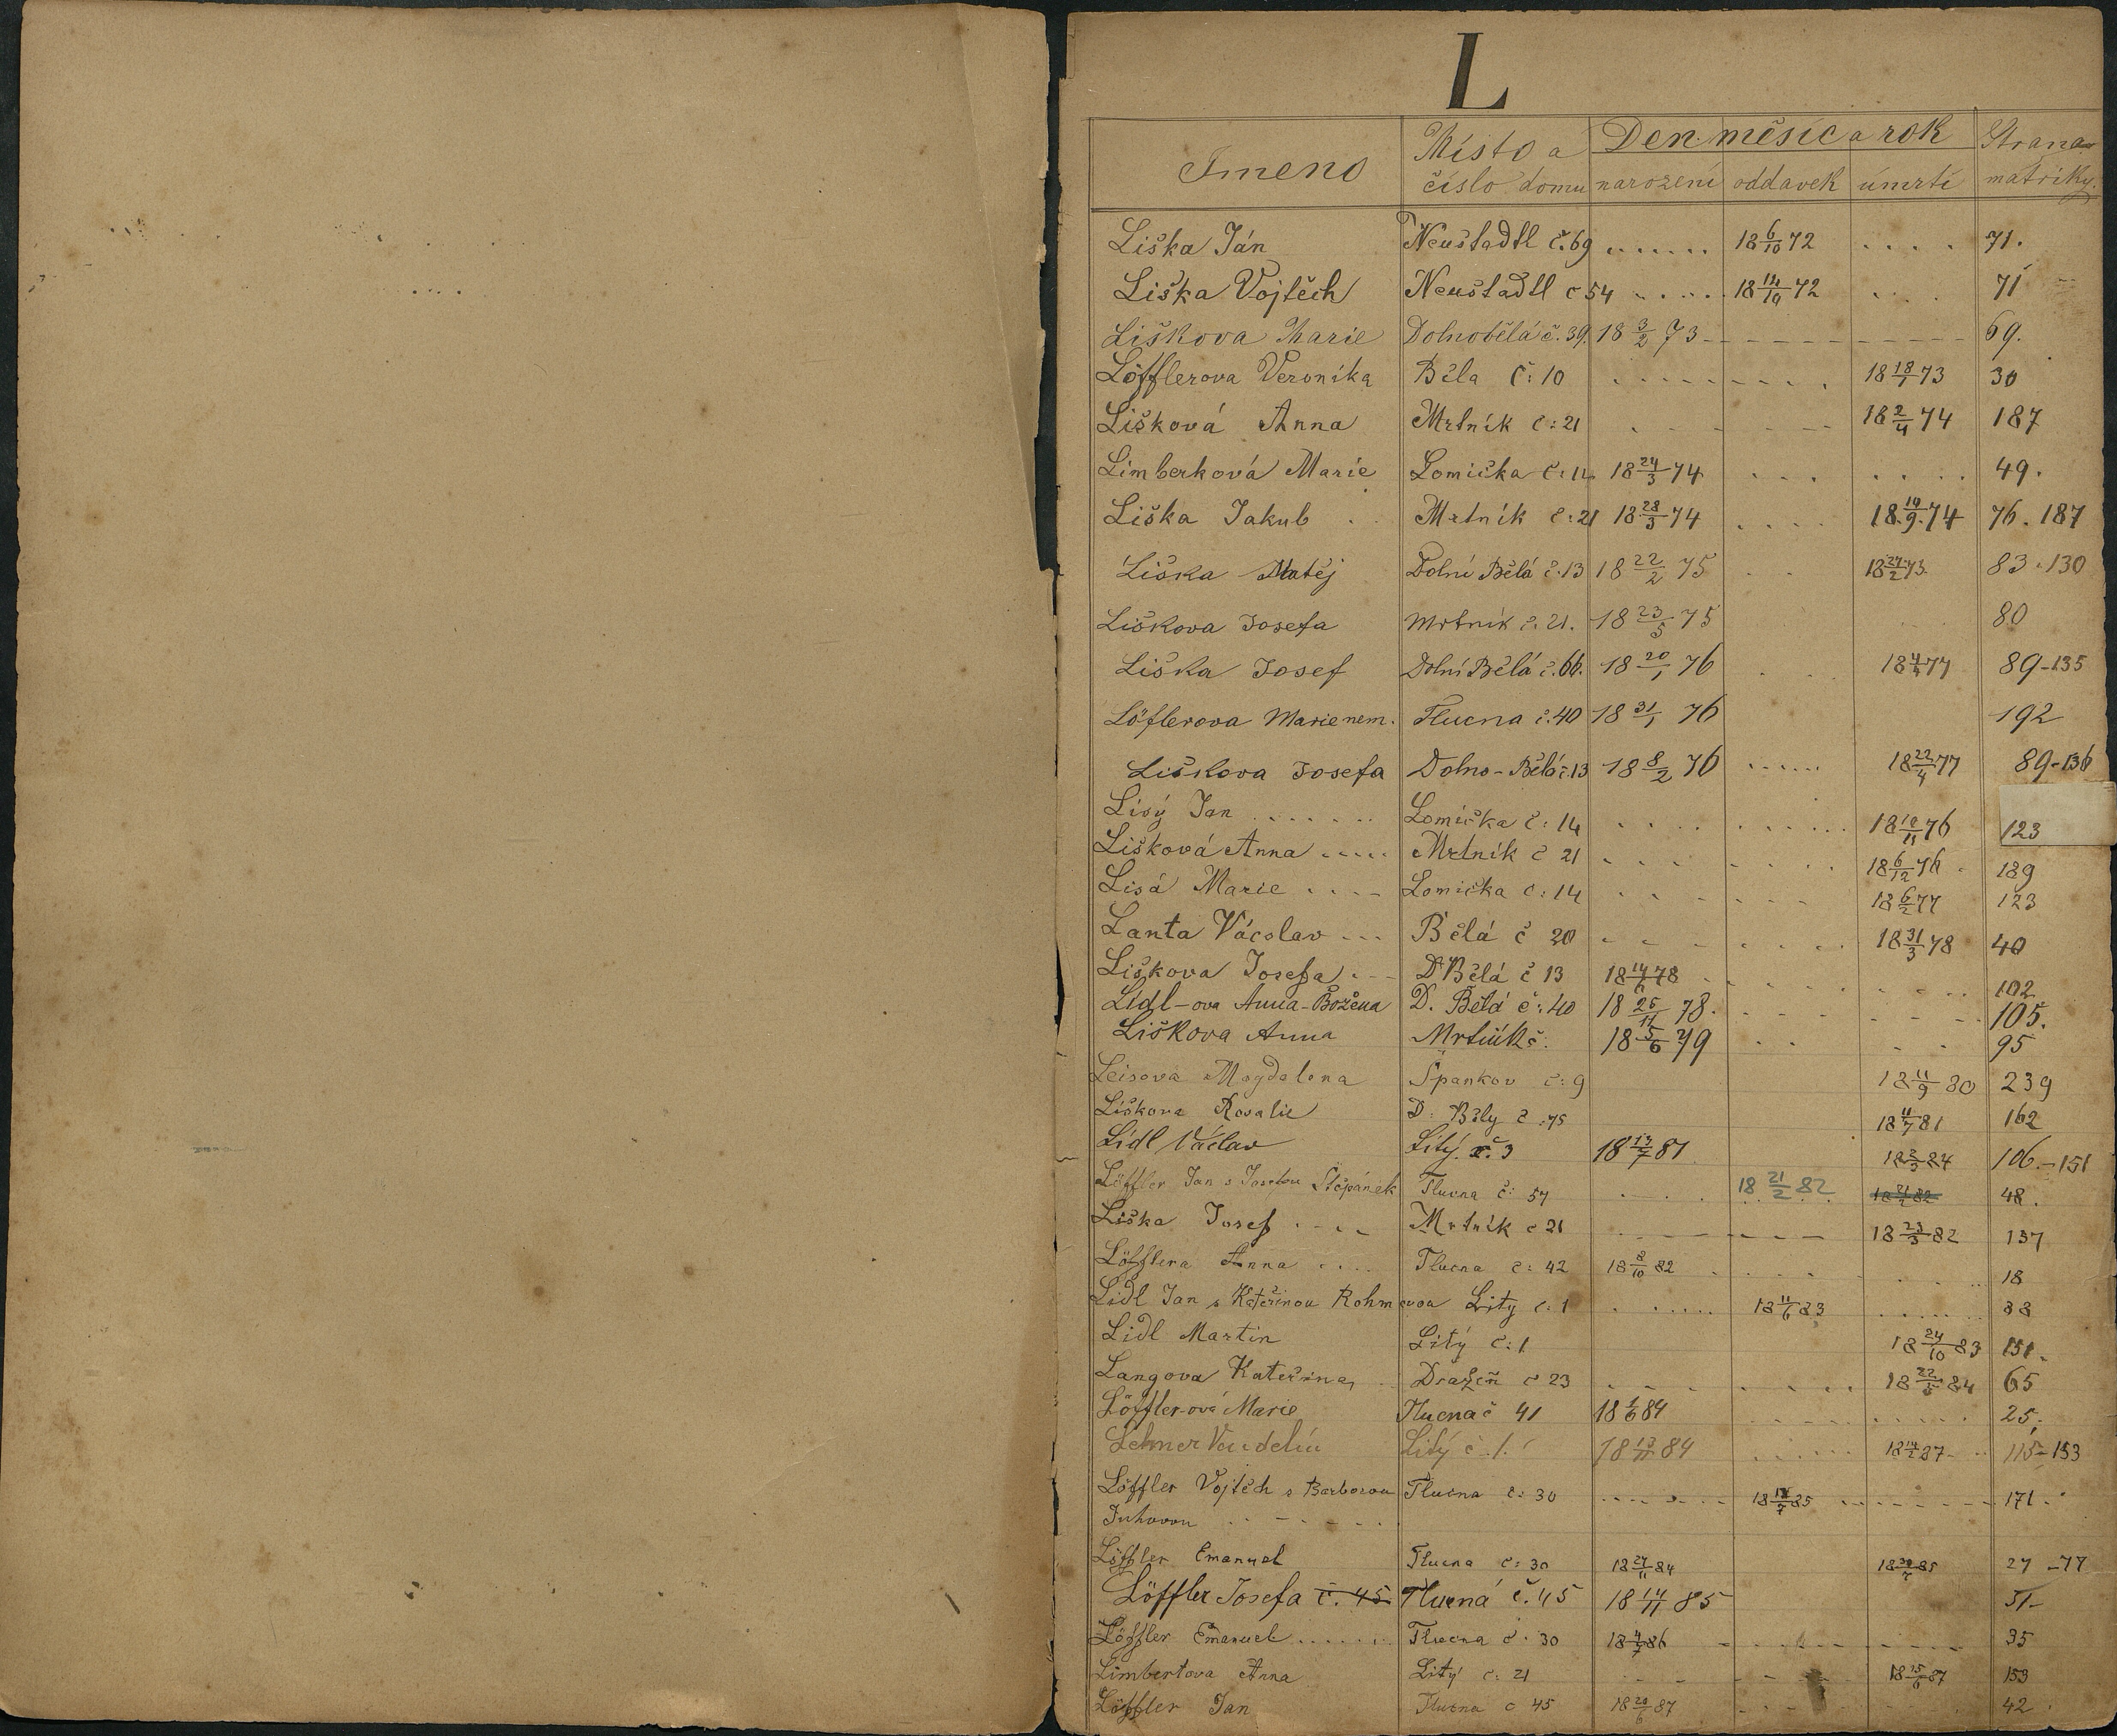 L
Jmeno Místo a Den měsíc a rok Strana
číslo domu narození oddavek úmrtí matriky.
Liška Ján Neustadtl č. 69 ...... 18 6/10 72 .... 71.
Liška Vojtěch Neustadtl č 54 ..... 72 .... 71
Liškova Marie Dolnobělá č. 39. 18 3/2 73 - - - - 69.
Löfflerova Veronika Běla č: 10 ........ 18 18/1 73 30
Lišková Anna Mrtník č: 21 ...... 18 2/4 74 187
Limberková Marie Lomička č: 18 24/3 74 ... .... 49.
Liška Jakub .. Mrtník č: 21 18 28/3 74 .... 18 19/9 74 76. 187
Liška Matěj Dolní Bělá č. 13 18 22/2 75 .. 83.130
Liškova Josefa Mrtník č. 21. 18 23/5 75 80
Liška Josef Dolní Bělá č. 66. 18 20/1 76 .. 77 89-135
Löflerova Marie nem. Tlucna č. 40 18 31/1 76 192
Liškova Josefa Dolno-Bělá č. 13 18 8/2 76 ..... 18 22/4 77 89-136
Lisý Jan ....... Lomička č: 14 .... ...... 76 123
Lišková Anna ..... Mrtník č 21 .... .... 18 6/12 76 . 189
Lisá Marie .... Lomička č: 14 ...... 18 6/2 77 123
Lanta Vácslav ... Bělá č 20 ...... 18 31/3 78 40
Liškova Josefa ... D Bělá č 13 78 ..... 102
Lídl-ova Anna-Božena D. Bělá č: 40 18 25/11 78. ...... 105.
Liškova Anna Mrtník č. 18 5/6 79 .. .. 95
Leisova Magdalena Špankov č: 9 18 11/9 80 239
Liškova Rosalie D: Běly č: 75 81 162
Lídl Václav Litý. č. 3 18 13/7 81 84 106.-151
Löffler Jan s Josefou Štěpánek Tlucna č: 57 .... 18 21/2 82 48.
Liška Josef .... Mrtník č 21 ...... 18 23/3 82 137
Löfflera Anna .... Tlucna č: 42 18 8/10 82 ...... 18
Lidl Jan s Kateřinou Rohmovou Litý č: 1 ...... 18 11/6 83 ...... 88
Lidl Martin Litý č: 1 18 24/10 83 151.
Langova Kateřina, Dražeň č 23 ...... 18 22/5 84 65
Löffler-ová Marie Tlucna č 41 84 ...... 25.
Lehner Vendelín Litý č 1. 84 .... 87 115-153
Löffler Vojtěch s Barborou Tlucna č: 30 ...... 85 ...... 171.
Juhovou .......
Löffler Emanuel Tlucna č: 30 18 27/11 84 85 27-77
Löffler Josefa č. 45 Tlucná č. 45 18 14/11 85 51-
Löffler Emanuel ...... Tlucna č: 30 86 ...... 35
Limbertova Anna Litý č: 21 .... 87 153
Löffler Jan Tlucna č 45 18 20/6 87 .... 42